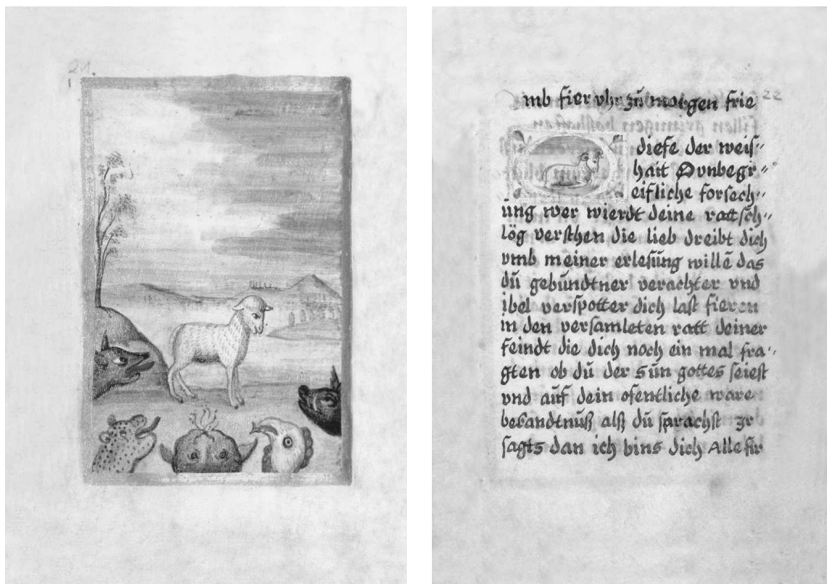 21.
22
mb fier vhr zū morgen frie
diese der weis-
hait O vnbegr-
eifliche forsech-
ūng wer wierdt deine rattsch-
lög versthen die lieb dreibt dich
vmb meiner erlesūng willē das
dū gebundtner verachter vnd
ibel verspotter dich last fieren
in den versamleten ratt deiner
feindt die dich noch ein mal fra-
gten ob dū der sūn gottes seiest
vnd aūf dein ofentliche ware
bekandtnūß alß dū sprachst ir
sagts dan ich bins dich Alle fir